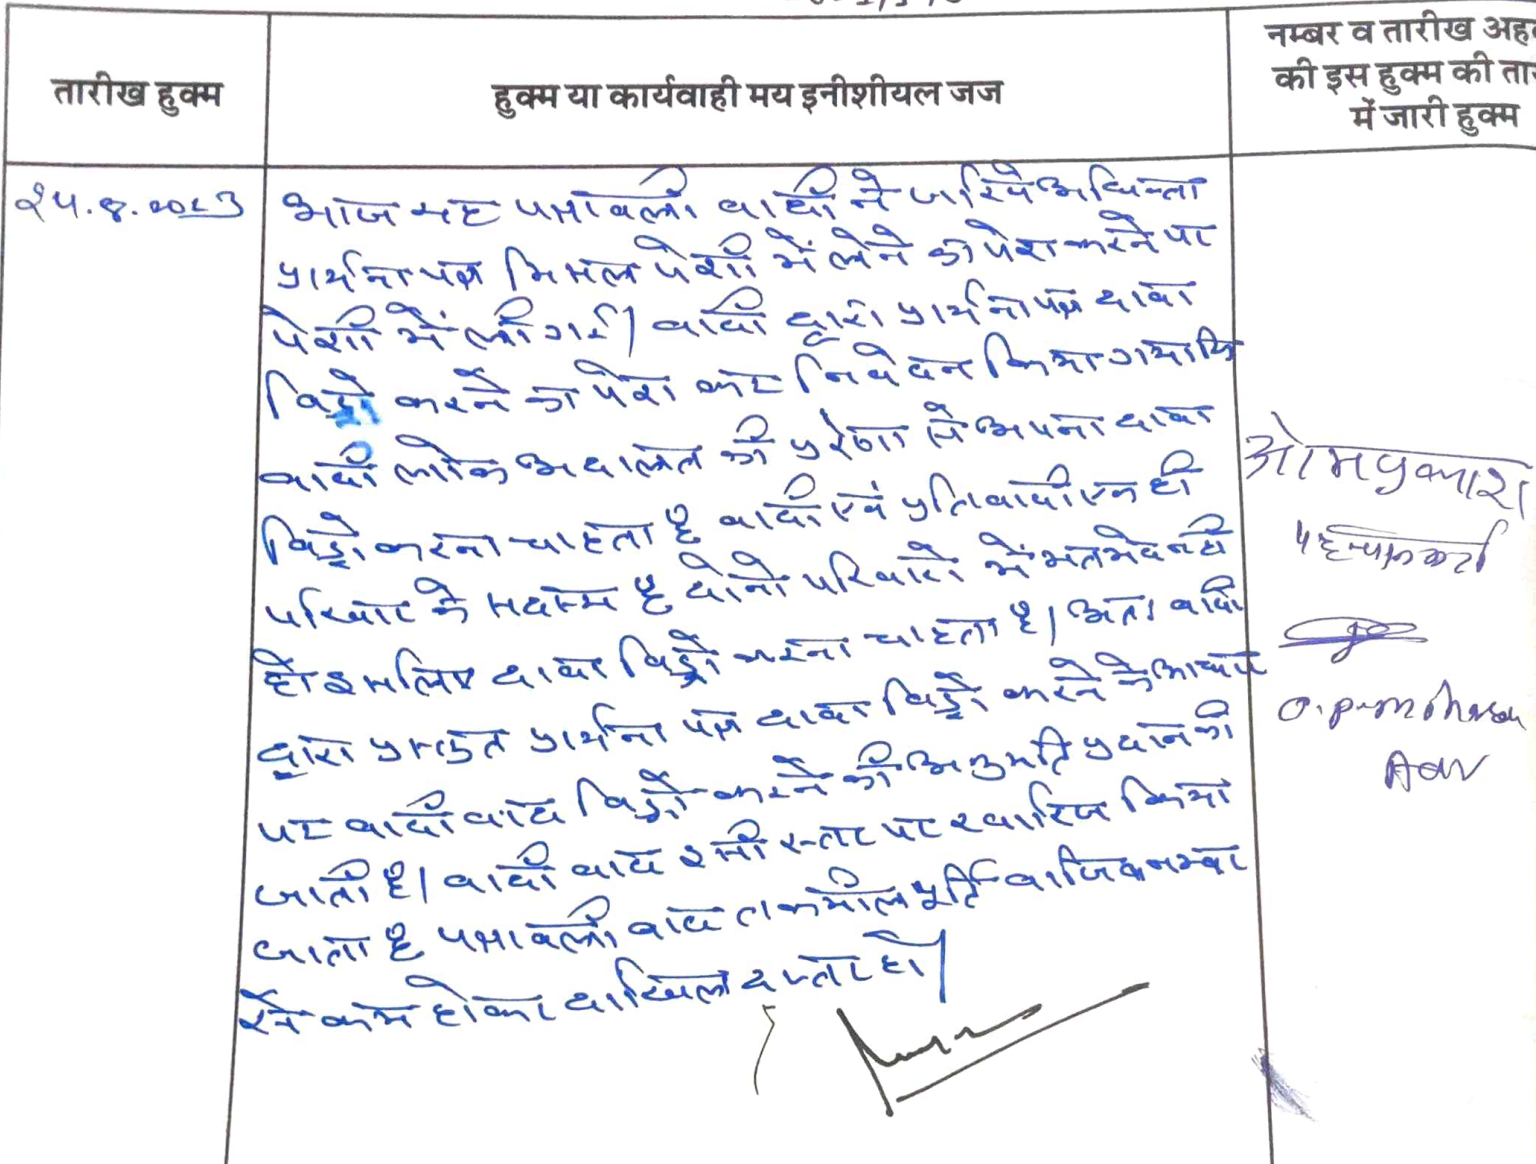 तारीख हुक्म
हुक्म या कार्यवाही मय इनीशीयल जज
नम्बर व तारीख अह
की इस हुक्म की ता
में जारी हुक्म
24.8.2023
आज यह पत्रावली वादी ने जरिये अधिवक्ता
प्रार्थना पत्र मिसल पेशी में लेने का पेश करने पर
पेशी में ली गई। वादी द्वारा प्रार्थना पत्र दावा
विड्रो करने का पेश कर निवेदन किया गया कि
वादी लोक अदालत की प्रेरणा से अपना दावा
विड्रो करना चाहता है वादी एवं प्रतिवादी एक ही
परिवार के सदस्य है दोनो परिवारो में मतभेद नही
हो इसलिए दावा विड्रो करना चाहता है। अतः वादी
द्वारा प्रस्तुत प्रार्थना पत्र दावा विड्रो करने के आधार
पर वादी वाद विड्रो करने की अनुमति प्रदान की
जाती है। वादी वाद इसी स्तर पर खारिज किया
जाता है पत्रावली वाद तकमील पूर्ति नम्बर
से कम होकर दाखिल दफ्तर हो।
ओमप्रकाश
पहचानकर्ता
Adv